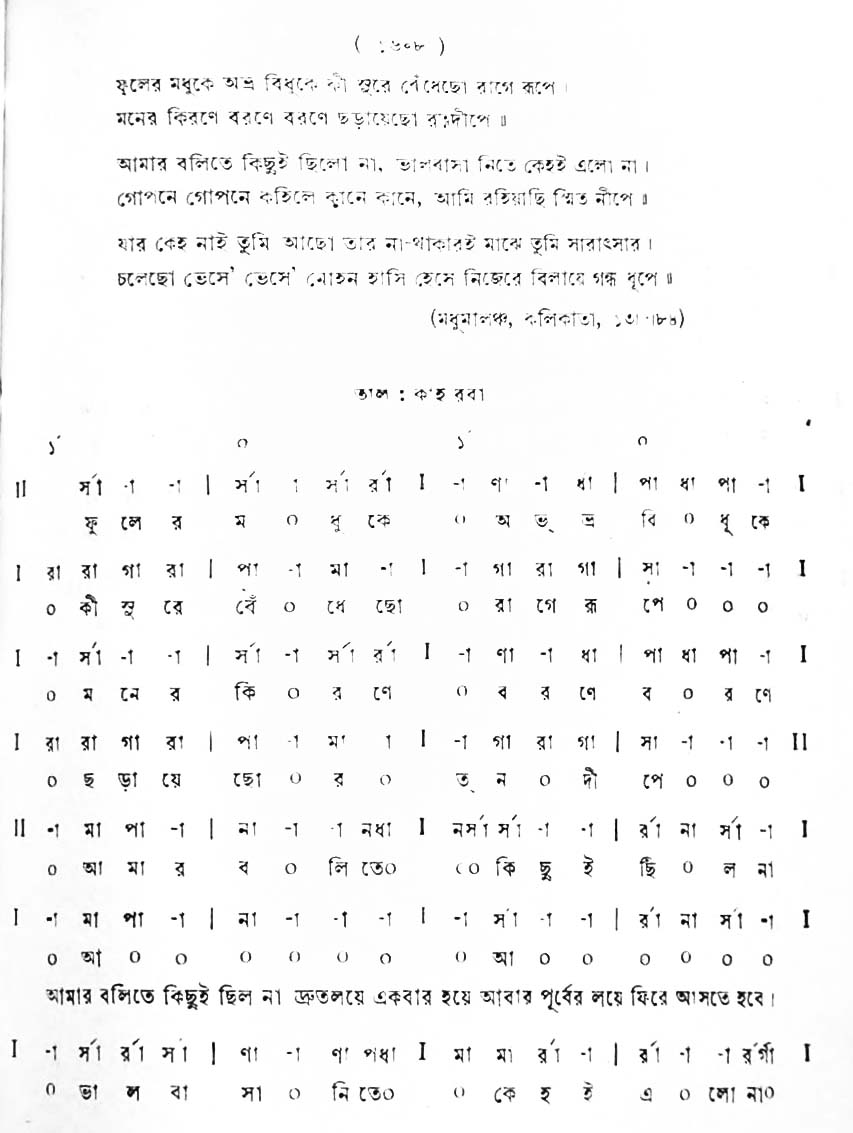 ( ১৬০৮ )
ফুলের মধুকে অভ্র বিধুকে কী সুরে বেঁধেছো রাগে রূপে।
মনের কিরণে বরণে বরণে ছড়ায়েছো রত্নদীপে॥
আমার বলিতে কিছুই ছিলো না, ভালবাসা নিতে কেহই এলো না।
গোপনে গোপনে কহিলে কানে কানে, আমি রহিয়াছি স্মিত নীপে॥
যার কেহ নাই তুমি আছো তার না-থাকারই মাঝে তুমি সারাৎসার।
চলেছো ভেসে' ভেসে' মোহন হাসি হেসে নিজেরে বিলায়ে গন্ধ ধূপে॥
(মধুমালঞ্চ, কলিকাতা,
তাল : কাহারবা
১´ ০ ১´ ০
II র্সা -া -া | র্সা া র্সা র্রা I -া ণা -া ধা | পা ধা পা -া I
ফু লে র ম ০ ধু কে ০ অ ভ্ ভ্র বি ০ ধূ কে
I রা রা গা রা | পা -া মা -া I -া গা রা গা | সা -া -া -া I
০ কী সু রে বেঁ ০ ধে ছো ০ রা গে রূ পে ০ ০ ০
I -া র্সা -া -া | র্সা -া র্সা র্রা I -া ণা -া ধা | পা ধা পা -া I
০ ম নে র কি ০ র ণে ০ ব র ণে ব ০ র ণে
I রা রা গা রা | পা -া মা া I -া গা রা গা | সা -া -া -া II
০ ছ ড়া য়ে ছো ০ র ০ ত্ ন ০ দী পে ০ ০ ০
II -া মা পা -া | না -া -া নধা I নর্সা র্সা -া -া | র্রা না র্সা -া I
০ আ মা র ব ০ লি তে০ ০০ কি ছু ই ছি ০ ল না
I -া মা পা -া | না -া -া -া I -া র্সা -া -া | র্রা না র্সা -া I
০ আ ০ ০ ০ ০ ০ ০ ০ আ ০ ০ ০ ০ ০ ০
আমার বলিতে কিছুই ছিল না দ্রুতলয়ে একবার হয়ে আবার পূর্বের লয়ে ফিরে আসতে হবে।
I -া র্সা র্রা র্সা | ণা -া ণা পধা I মা মা র্রা -া | র্রা -া -া র্রর্গা I
০ ভা ল বা সা ০ নি তে০ ০ কে হ ই এ ০ লো না০